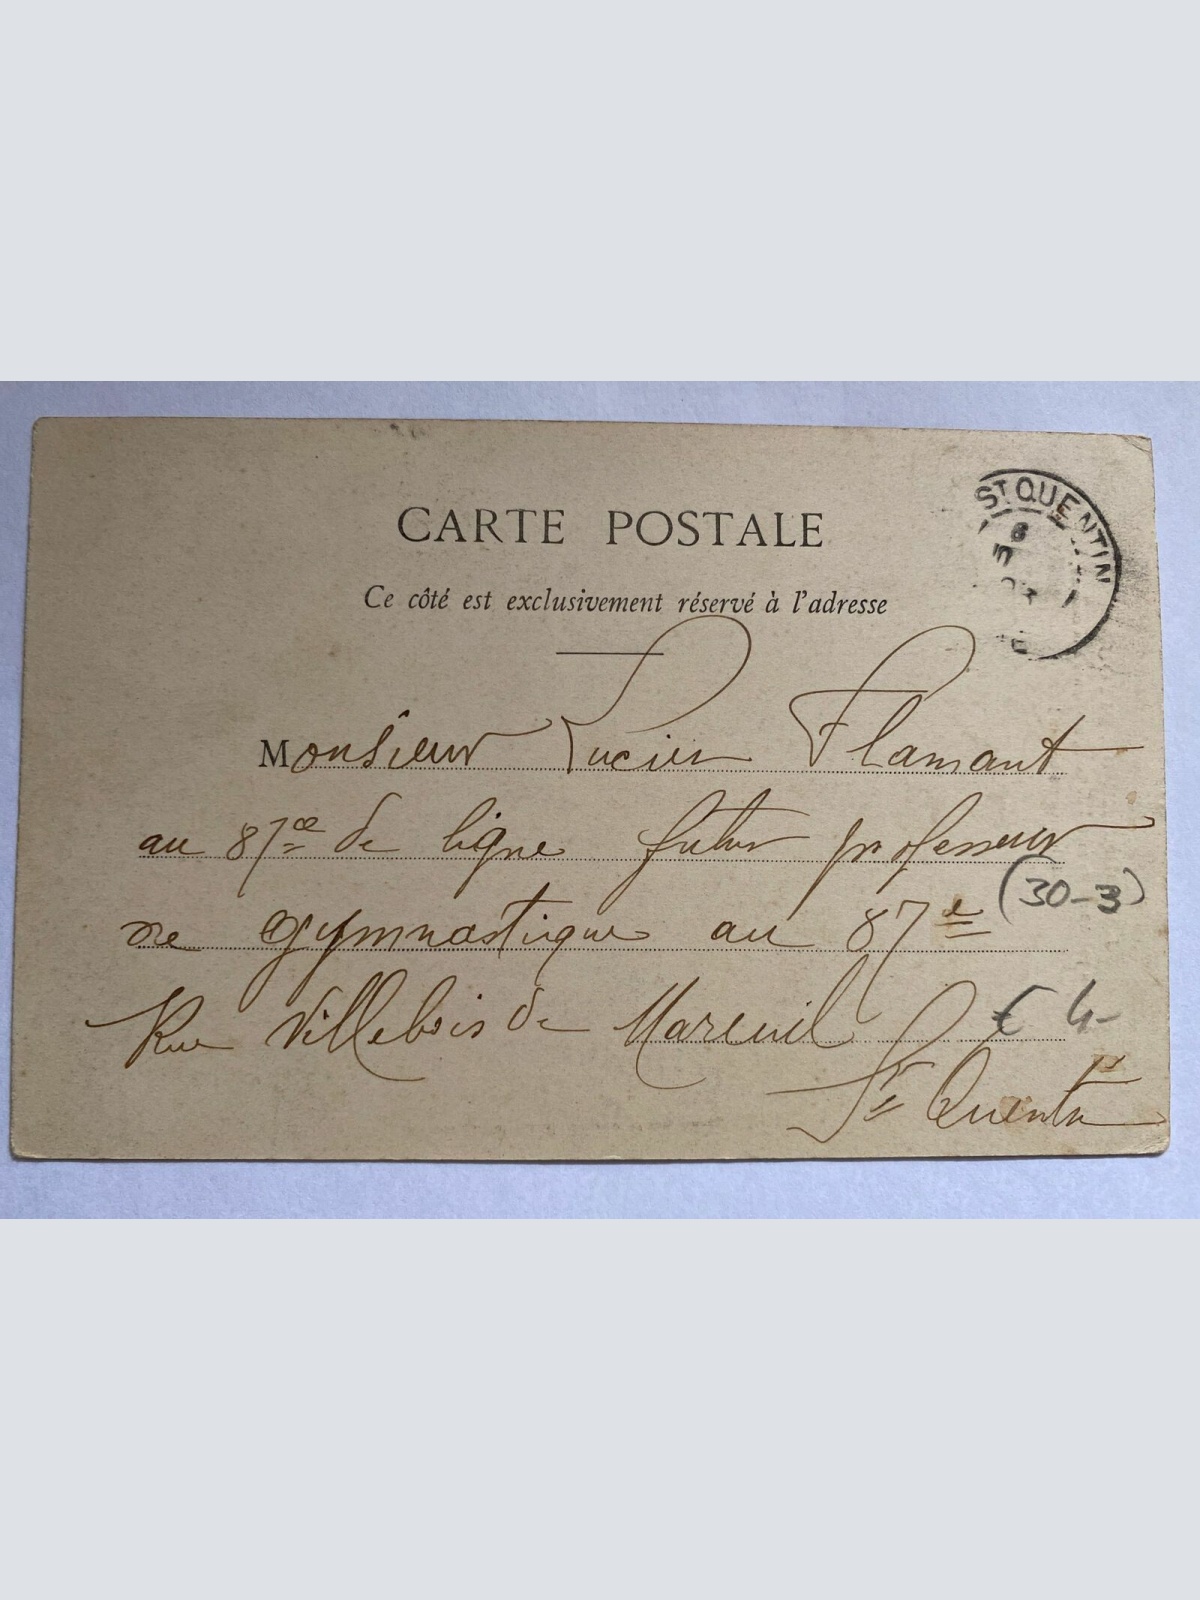 CARTE POSTALE
Ce côté est exclusivement réservé à l'adresse
ST QUENTIN
Monsieur Lucien Flamant
au 87e de ligne futur professeur
de gymnastique au 87e
(30-3)
Rue Villebois de Mareuil
€ 4-
St Quentin